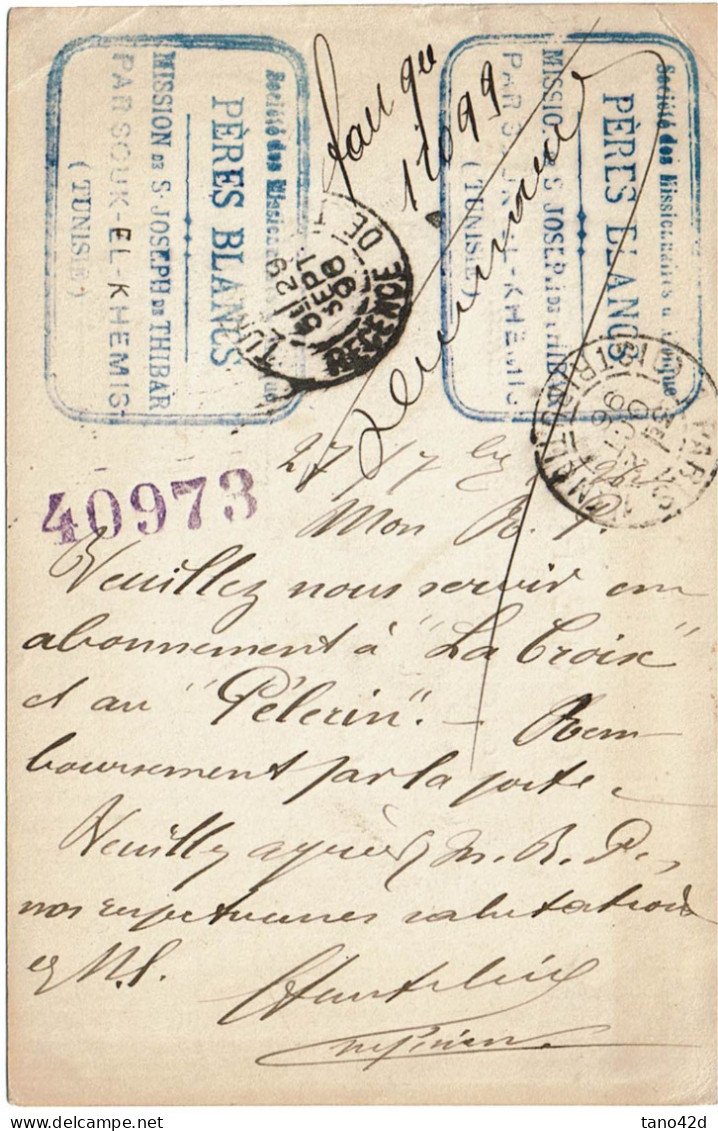 Société des Missionnaires d'Afrique
PÈRES BLANCS
MISSION DE S. JOSEPH DE THIBAR
PAR SOUK-EL-KHEMIS
(TUNISIE)
Société des Missionnaires d'Afrique
PÈRES BLANCS
MISSION DE S. JOSEPH DE THIBAR
PAR SOUK-EL-KHEMIS
(TUNISIE)
29
SEPT
REGENCE DE
PARIS
40973
27/7
Mon
Veuillez nous servir un
abonnement à "La Croix"
et au "Pélerin". — Rem
boursement par la poste.
Veuillez agréer, M. R. P.,
nos respectueuses salutations
en N.S.
tano42d